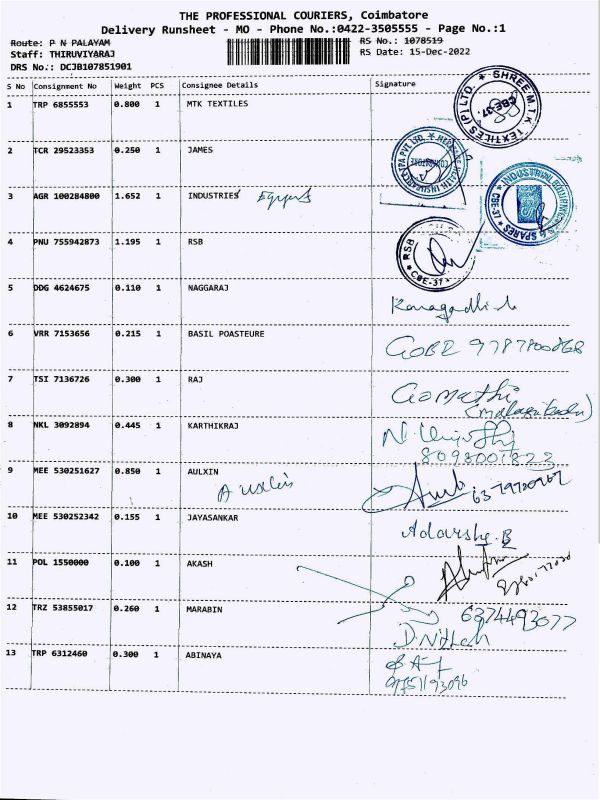 THE PROFESSIONAL COURIERS, Coimbatore
Delivery Runsheet - MO - Phone No.:0422-3505555 - Page No.:1
Route: P N PALAYAM RS No.: 1078519
Staff: THIRUVIYARAJ RS Date: 15-Dec-2022
DRS No.: DCJB107851901
S No Consignment No Weight PCS Consignee Details Signature
1 TRP 6855553 0.800 1 MTK TEXTILES
SHREE M.T.K. TEXTILES (P) LTD. CBE-37.
2 TCR 29523353 0.250 1 JAMES
3 AGR 100284800 1.652 1 INDUSTRIES
INDUSTRIAL EQUIPMENTS & SPARES CBE-37
4 PNU 755942873 1.195 1 RSB
RSB CBE-37
5 DDG 4624675 0.110 1 NAGGARAJ
6 VRR 7153656 0.215 1 BASIL POASTEURE
7 TSI 7136726 0.300 1 RAJ
Gomathi
8 NKL 3092894 0.445 1 KARTHIKRAJ
9 MEE 530251627 0.850 1 AULXIN
10 MEE 530252342 0.155 1 JAYASANKAR
Adarsh.B
11 POL 1550000 0.100 1 AKASH
12 TRZ 53855017 0.260 1 MARABIN
6374493077
13 TRP 6312460 0.300 1 ABINAYA
9751193096